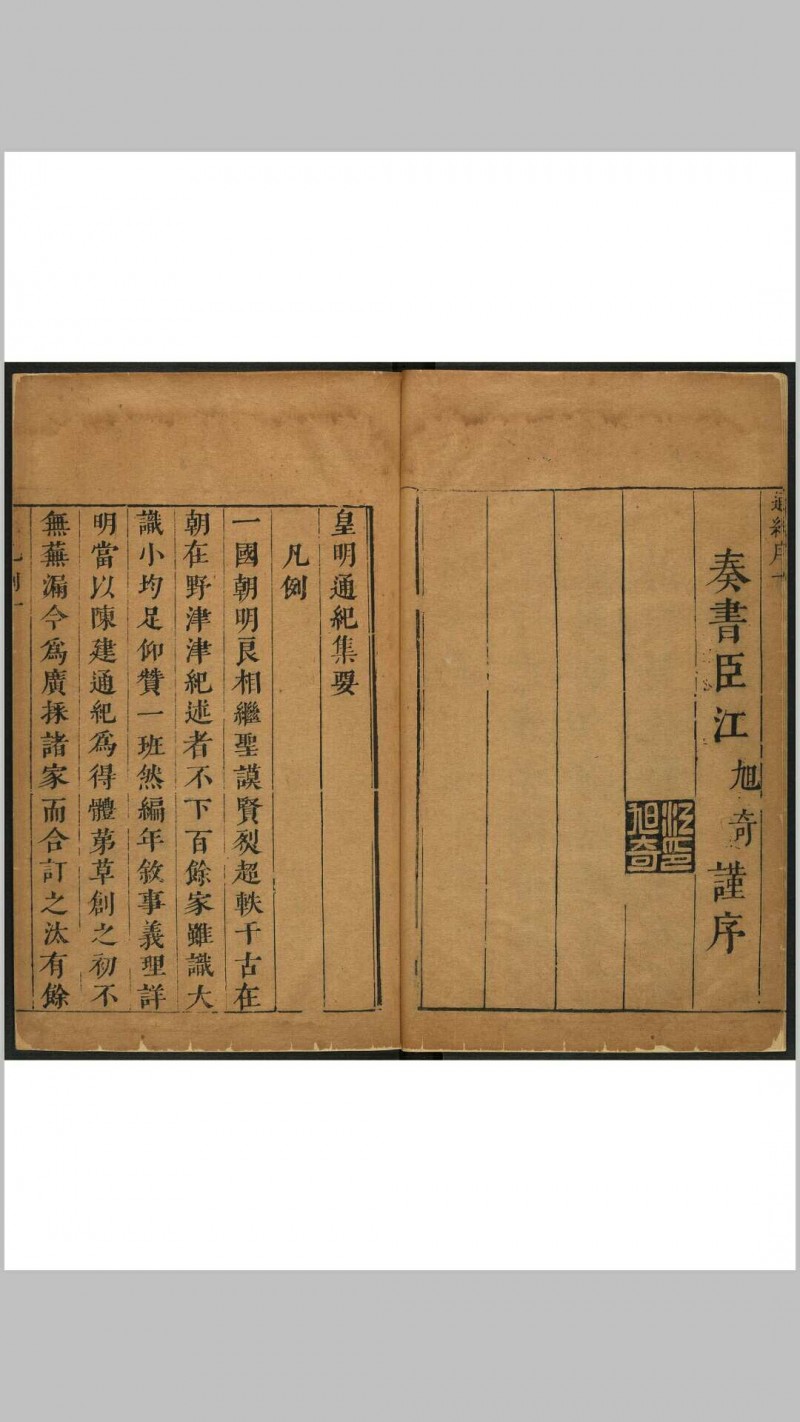 通紀序十
奏書臣江旭奇謹序
江旭奇印
皇明通紀集要
凡例
一國朝明良相繼聖謨賢烈超軼千古在
朝在野津津紀述者不下百餘家雖識大
識小均足仰贊一班然編年敘事義理詳
明當以陳建通紀為得體苐草創之初不
無蕪漏今爲廣採諸家而合訂之汰有餘
凡例一